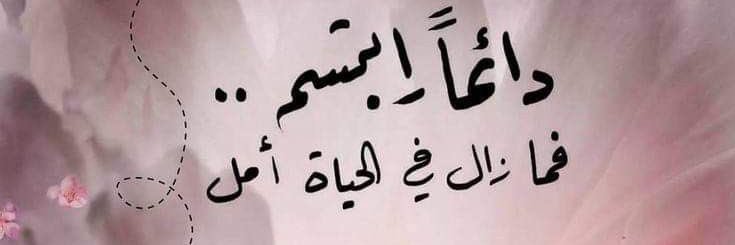 دائماً ابتسم ..
فما زال في الحياة أمل